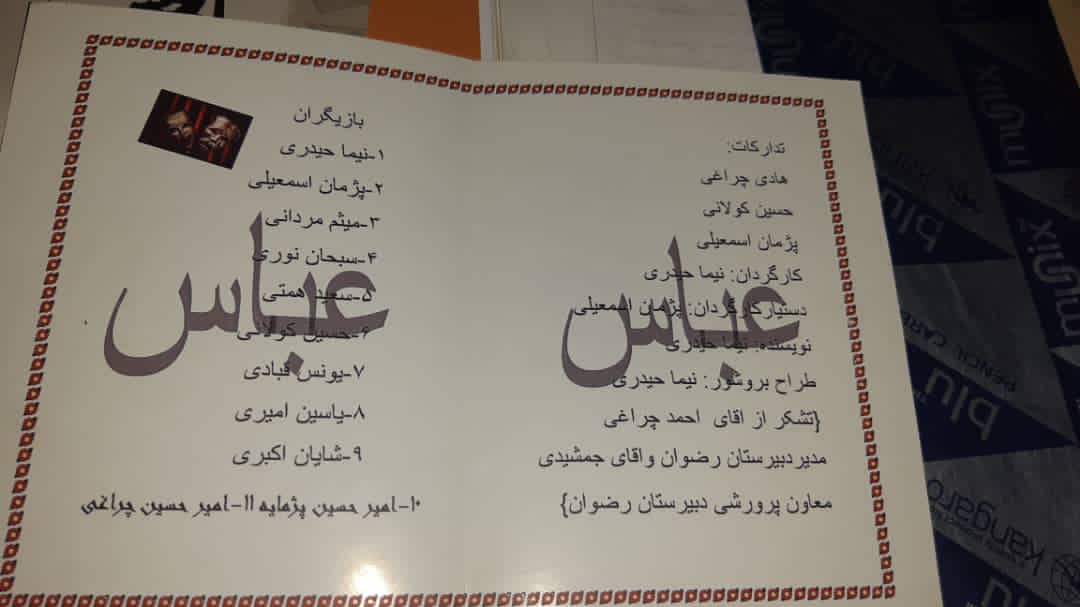 تدارکات:
هادی چراغی
حسین کولانی
پژمان اسمعیلی
کارگردان: نیما حیدری
دستیارکارگردان: پژمان اسمعیلی
نویسنده: نیما حیدری
طراح بروشور: نیما حیدری
{تشکر از اقای احمد چراغی
مدیردبیرستان رضوان واقای جمشیدی
معاون پرورشی دبیرستان رضوان}
عباس
بازیگران
۱-نیما حیدری
۲-پژمان اسمعیلی
۳-میثم مردانی
۴-سبحان نوری
۵-سعید همتی
۶-حسین کولانی
۷-یونس قبادی
۸-یاسین امیری
۹-شایان اکبری
۱۰-امیر حسین پژمایه ۱۱-امیر حسین چراغی
عباس
blu
mūnix
blu
mūnix
blu
PENCIL CARE
kangaro
blu